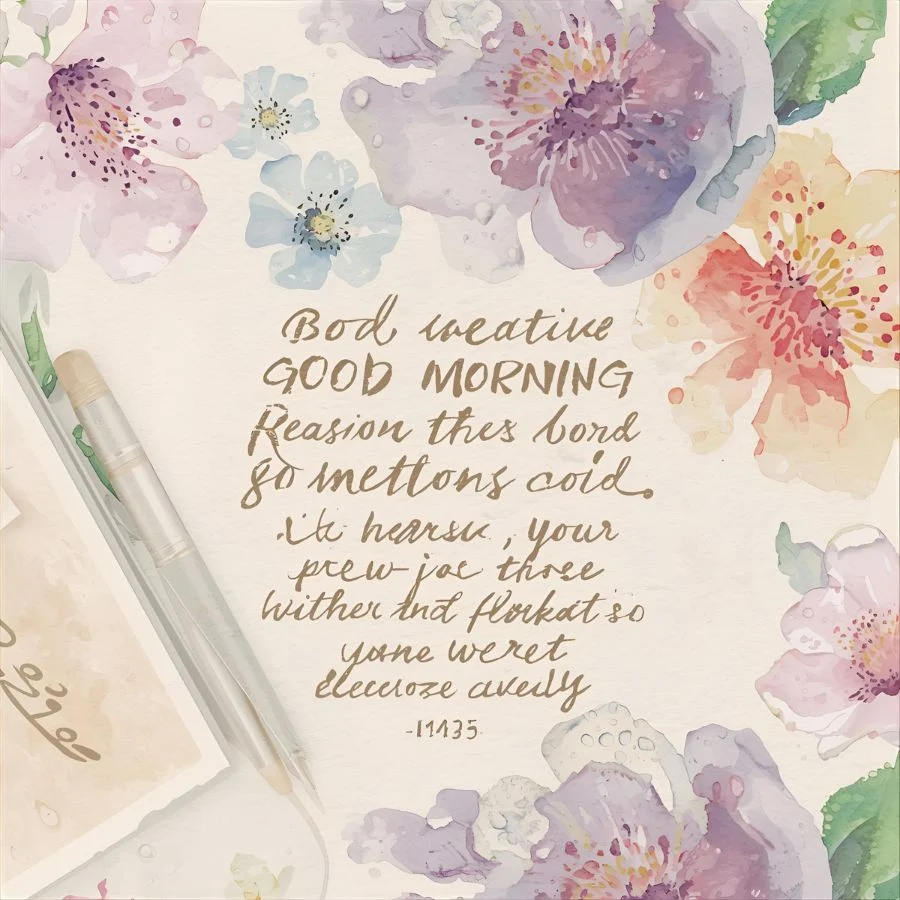 Bod weative
GOOD MORNING
Reasion thes bord
go mettons coid.
hearsu, your
prew joc those
wither ind florkat so
yone weret
avedly
-11435